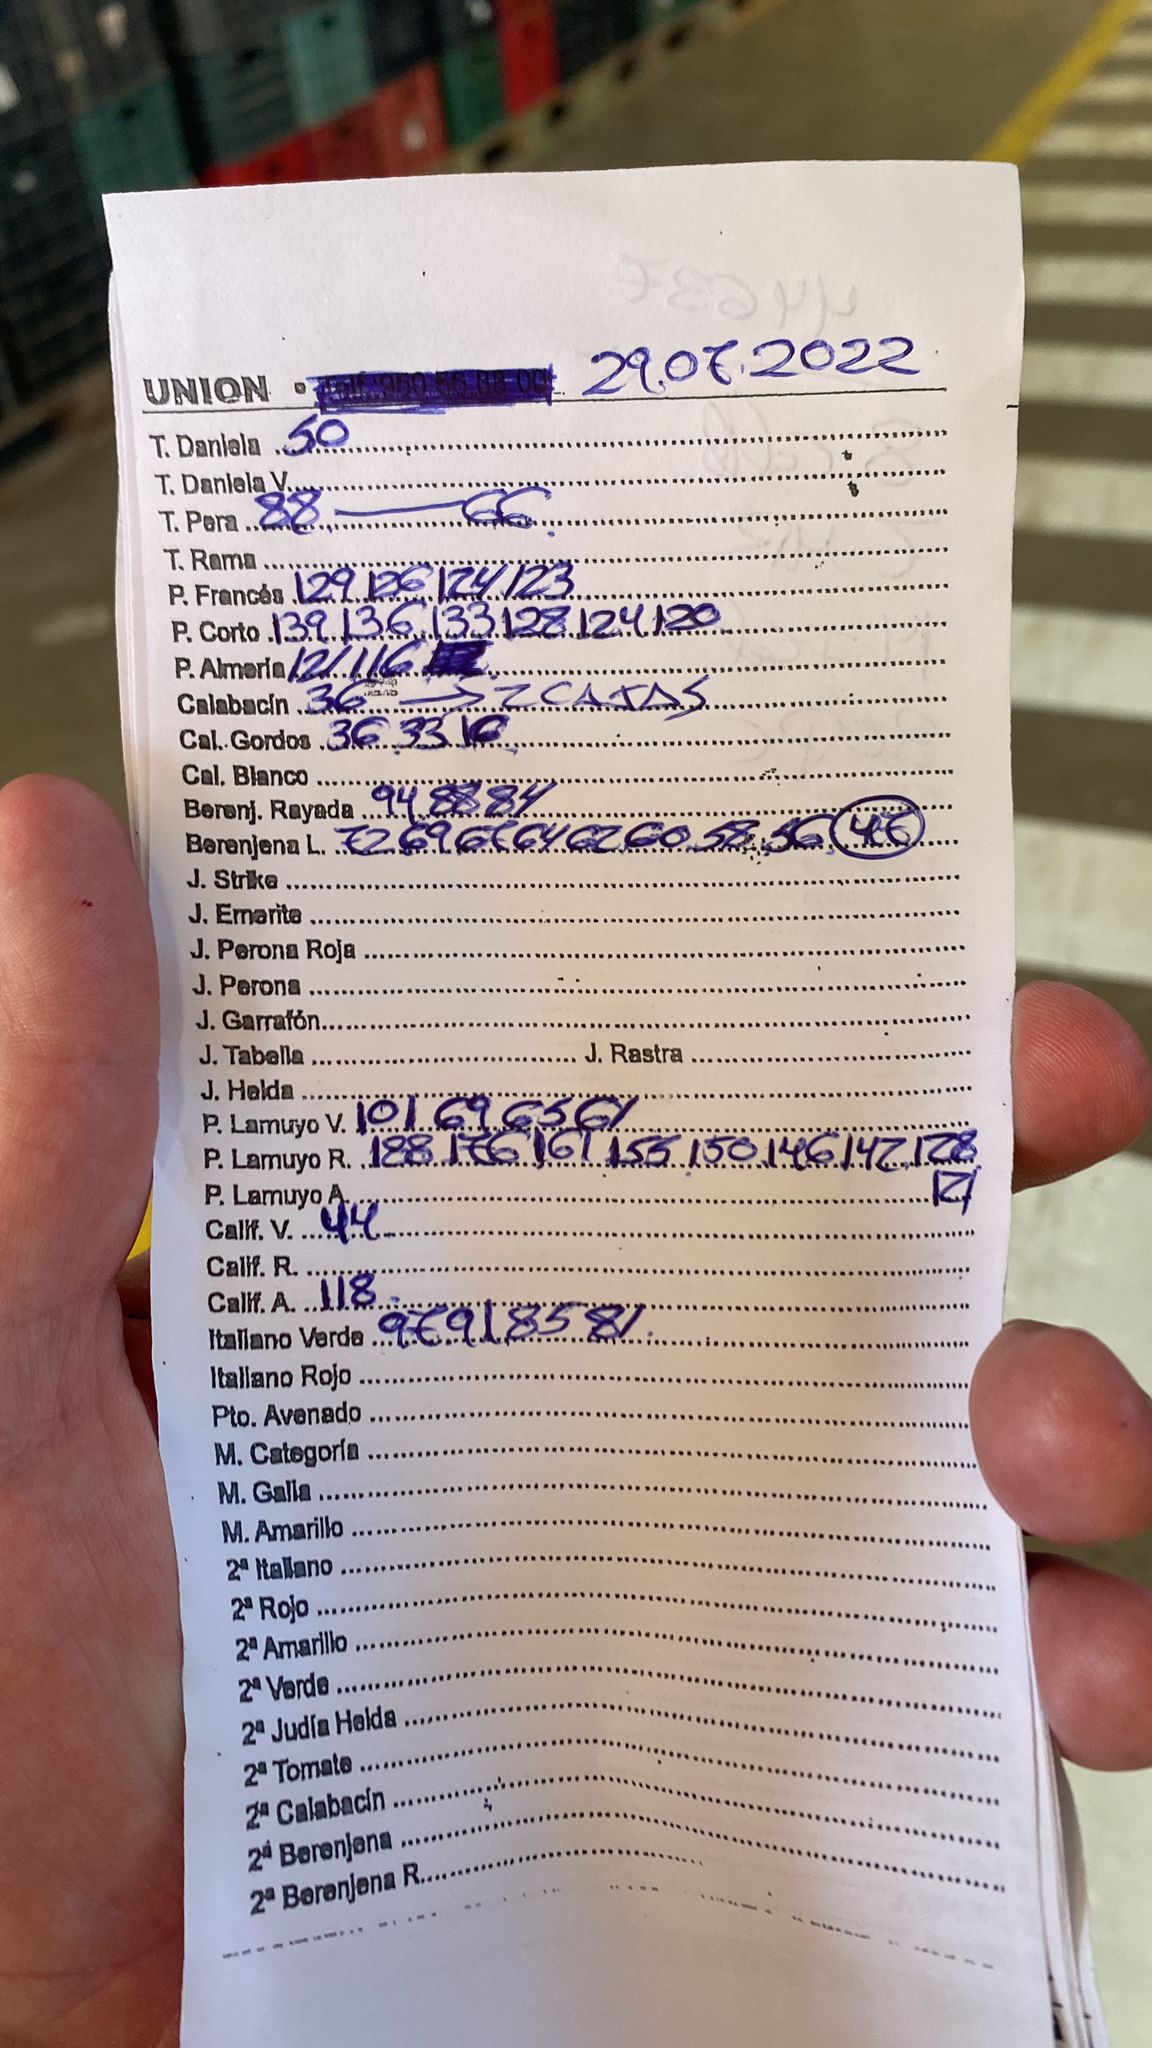 UNION • 29.07.2022
T. Daniela 50
T. Daniela V.
T. Pera 88 — 66
T. Rama
P. Francés 129 126 124 123
P. Corto 139 136 133 128 124 120
P. Almería 121 116
Calabacín 36 → 2 CAJAS
Cal. Gordos 36 33 16
Cal. Blanco
Berenj. Rayada 94 88 84
Berenjena L. 72 69 67 64 62 60 58 56 47
J. Strike
J. Emerite
J. Perona Roja
J. Perona
J. Garrafón
J. Tabella J. Rastra
J. Helda
P. Lamuyo V. 101 69 65 61
P. Lamuyo R. 188 176 161 155 150 146 142 128
P. Lamuyo A. 121
Calif. V. 44
Calif. R.
Calif. A. 118
Italiano Verde 97 91 85 81
Italiano Rojo
Pto. Avenado
M. Categoría
M. Galia
M. Amarillo
2ª Italiano
2ª Rojo
2ª Amarillo
2ª Verde
2ª Judía Helda
2ª Tomate
2ª Calabacín
2ª Berenjena
2ª Berenjena R.